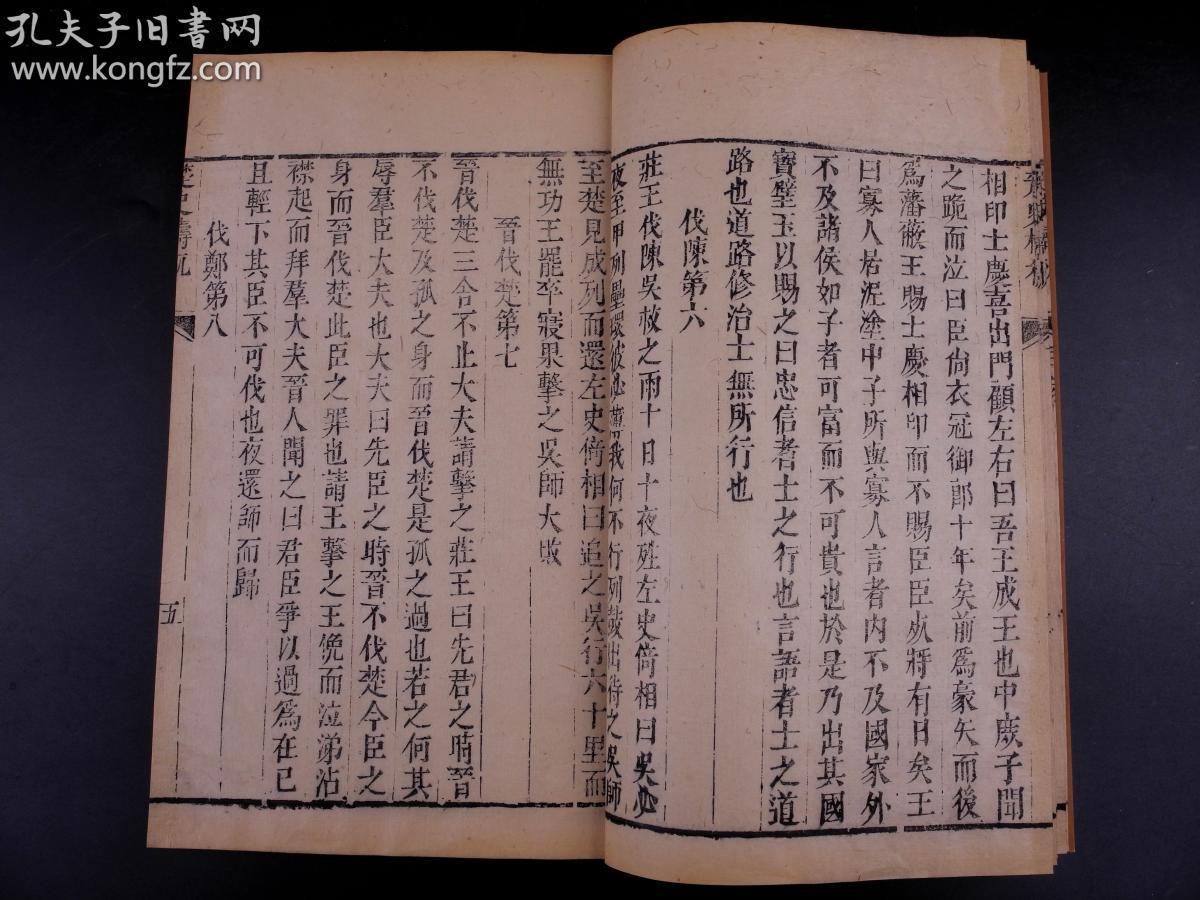 孔夫子旧书网
www.kongfz.com
相印士慶喜出門顧左右曰吾王成王也中庶子聞
之跪而泣曰臣尙衣冠御郎十年矣前爲豪矢而後
爲藩蔽王賜士慶相印而不賜臣臣死將有日矣王
曰寡人居泥塗中子所與寡人言者内不及國家外
不及諸侯如子者可富而不可貴也於是乃出其國
寶璧玉以賜之曰忠信者士之行也言語者士之道
路也道路修治士無所行也
伐陳第六
莊王伐陳吳救之雨十日十夜姓左史倚相曰吳必
夜至甲列壘壞彼必薄我何不行列鼓出待之吳師
至楚見成列而還左史倚相曰追之吳行六十里而
無功王罷卒寢果擊之吳師大敗
晉伐楚第七
晉伐楚三合不止大夫請擊之莊王曰先君之時晉
不伐楚及孤之身而晉伐楚是孤之過也若之何其
辱羣臣大夫也大夫曰先臣之時晉不伐楚今臣之
身而晉伐楚此臣之罪也請王擊之王俛而泣涕沾
襟起而拜羣大夫晉人聞之曰君臣爭以過爲在已
且輕下其臣不可伐也夜還師而歸
伐鄭第八
楚史檮杌
五